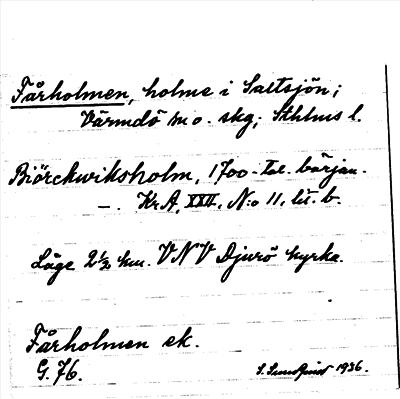 Fårholmen, holme i Saltsjön;
Värmdö m o. skg; Sthlms l.
Biörckwiksholm, 1700-tal. början.
—. KrA, XXII, N:o 11, lit. b.
Läge 2½ km. VNV Djurö kyrka.
Fårholmen ek.
G. 76.
S. 1936.